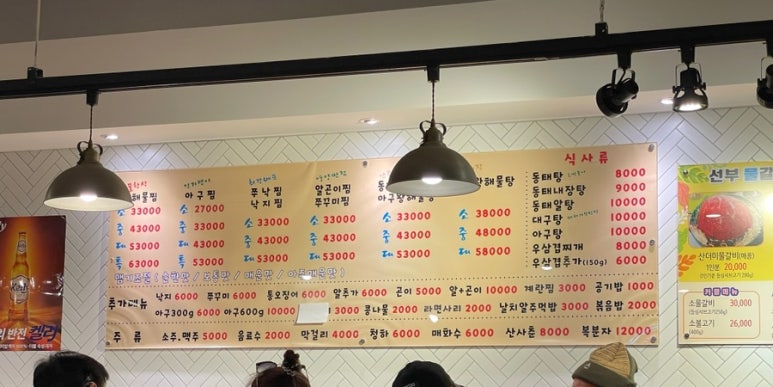 해물찜
소 33000
중 43000
대 53000
특 63000
아구찜
소 27000
중 33000
대 43000
특 53000
쭈낙찜
낙지찜
소 33000
중 43000
대 53000
알곤이찜
쭈꾸미찜
소 33000
중 43000
대 53000
소 33000
중 43000
대 53000
해물탕
소 38000
중 48000
대 58000
식사류
동태탕 8000
동태내장탕 9000
동태알탕 10000
대구탕 10000
아구탕 10000
우삼겹찌개 8000
우삼겹추가(150g) 6000
맵기조절 (순한맛 / 보통맛 / 매운맛 / 아주매운맛)
추가메뉴 낙지 6000 쭈꾸미 6000 통오징어 6000 알추가 6000 곤이 5000 알+곤이 10000 계란찜 3000 공기밥 1000
아구300g 6000 아구600g 10000 3000 콩나물 3000 라면사리 2000 날치알주먹밥 3000 볶음밥 2000
주류 소주.맥주 5000 음료수 2000 막걸리 4000 청하 6000 매화수 6000 산사춘 8000 복분자 12000
선부 물갈
산더미물갈비(매콤)
1인분 20,000
소물갈비 30,000
소불고기 26,000
(400g)
의 반전